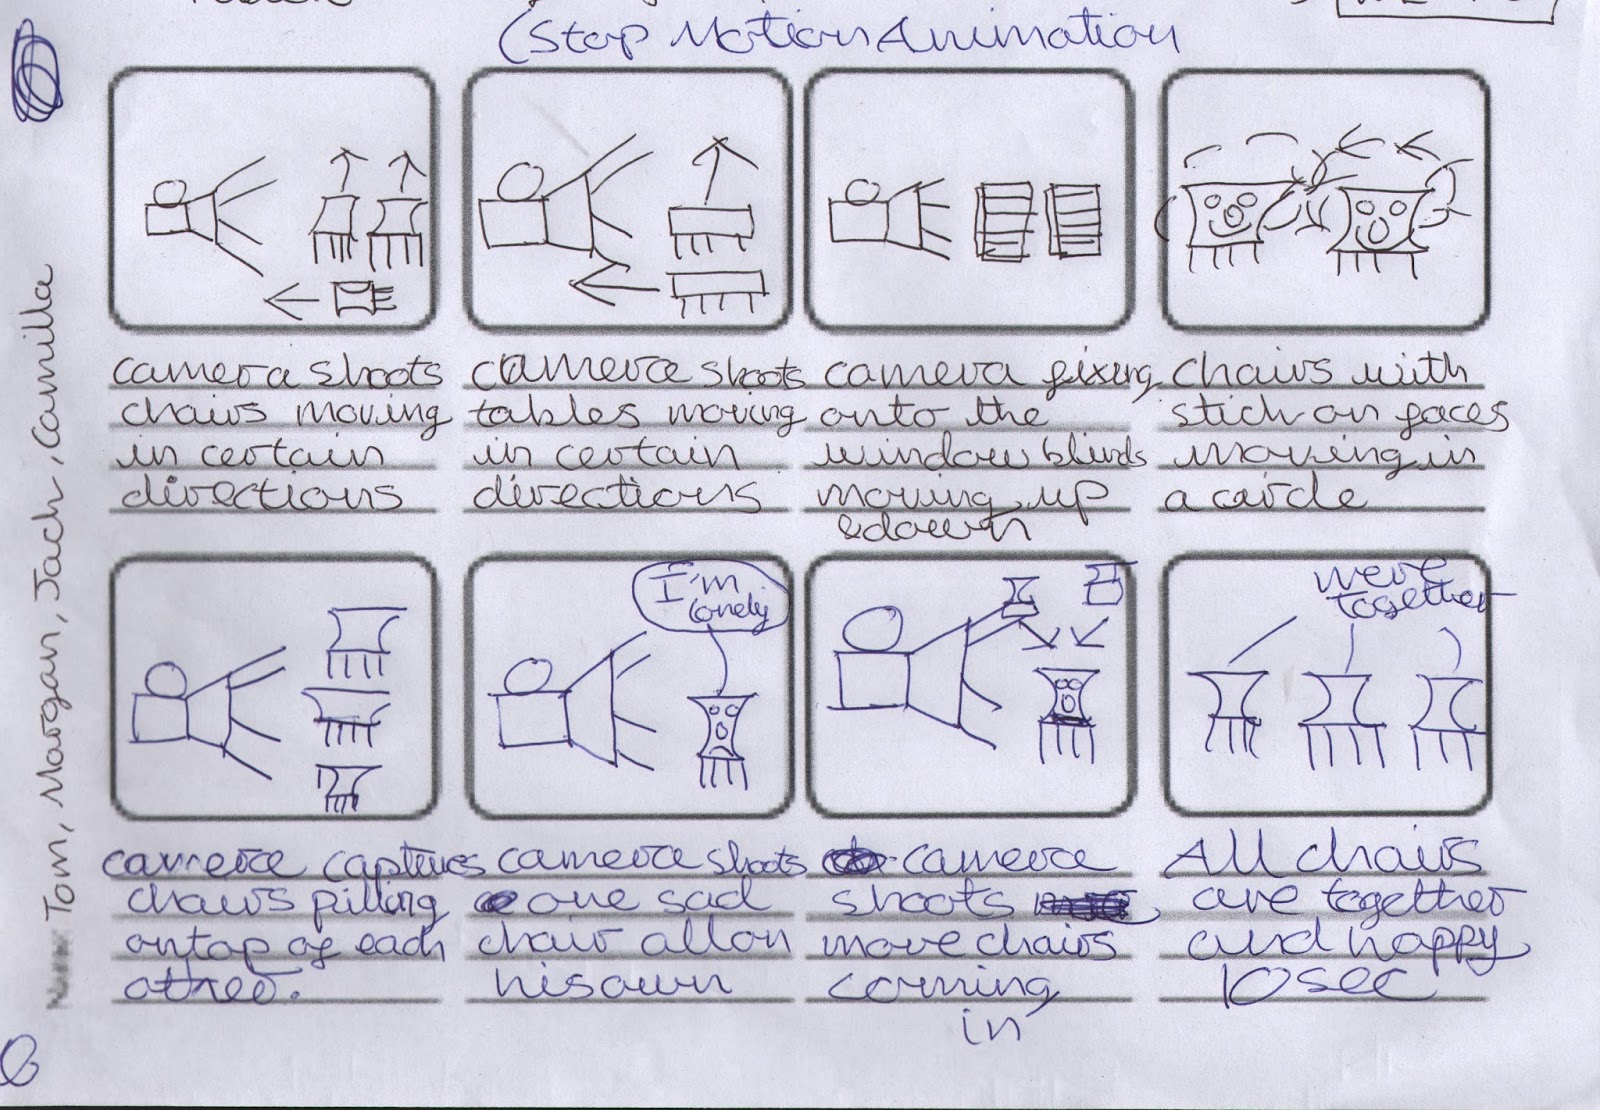 (Stop Motion Animation
Tom, Morgan, Jach, Camilla
camera shoots
chairs moving
in certain
directions
camera shoots
tables moving
in certain
directions
camera fixing
onto the
window blinds
moving up
& down
Chairs with
stick on faces
moving in
a circle
I'm
lonely
we're
together
camera captures
chairs pilling
ontop of each
other.
camera shoots
one sad
chair allon
his own
camera
shoots
move chairs
comming
in
All chairs
are together
and happy
10 sec